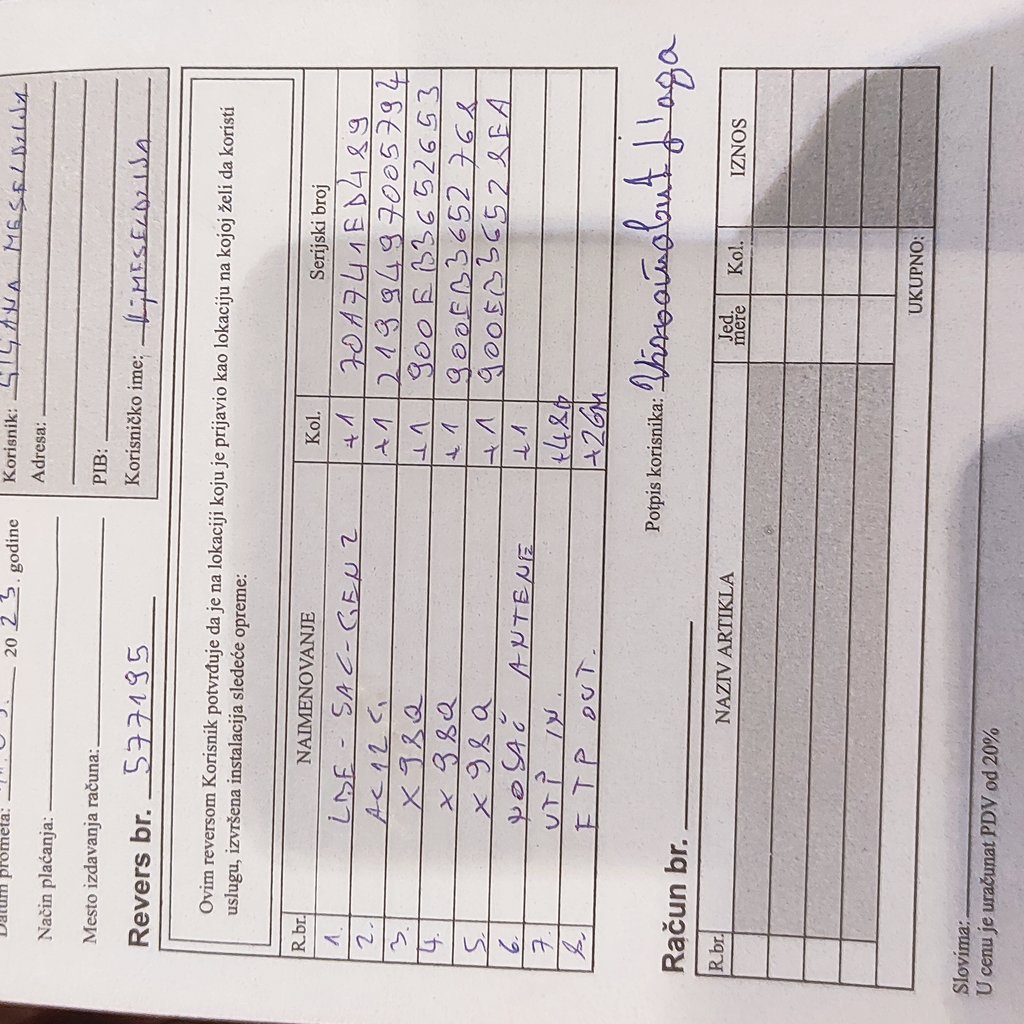 Datum prometa: 20 23 . godine
Način plaćanja:
Mesto izdavanja računa:
Revers br. 577195
Korisnik: MESELDZIJA
Adresa:
PIB:
Korisničko ime: ljmeseldzija
Ovim reversom Korisnik potvrđuje da je na lokaciji koju je prijavio kao lokaciju na kojoj želi da koristi
uslugu, izvršena instalacija sledeće opreme:
R.br. NAIMENOVANJE Kol. Serijski broj
1. LBE-5AC-GEN2 +1 70A741ED489
2. AC12G +1 2199497005794
3. X98Q +1 900EB3652653
4. X98Q +1 900EB3652768
5. X98Q +1 900EB36528EA
6. NOSAČ ANTENE +1
7. UTP IN. +48m
8. FTP OUT. +26m
Potpis korisnika:
Račun br.
R.br. NAZIV ARTIKLA Jed. mere Kol. IZNOS
UKUPNO:
Slovima:
U cenu je uračunat PDV od 20%